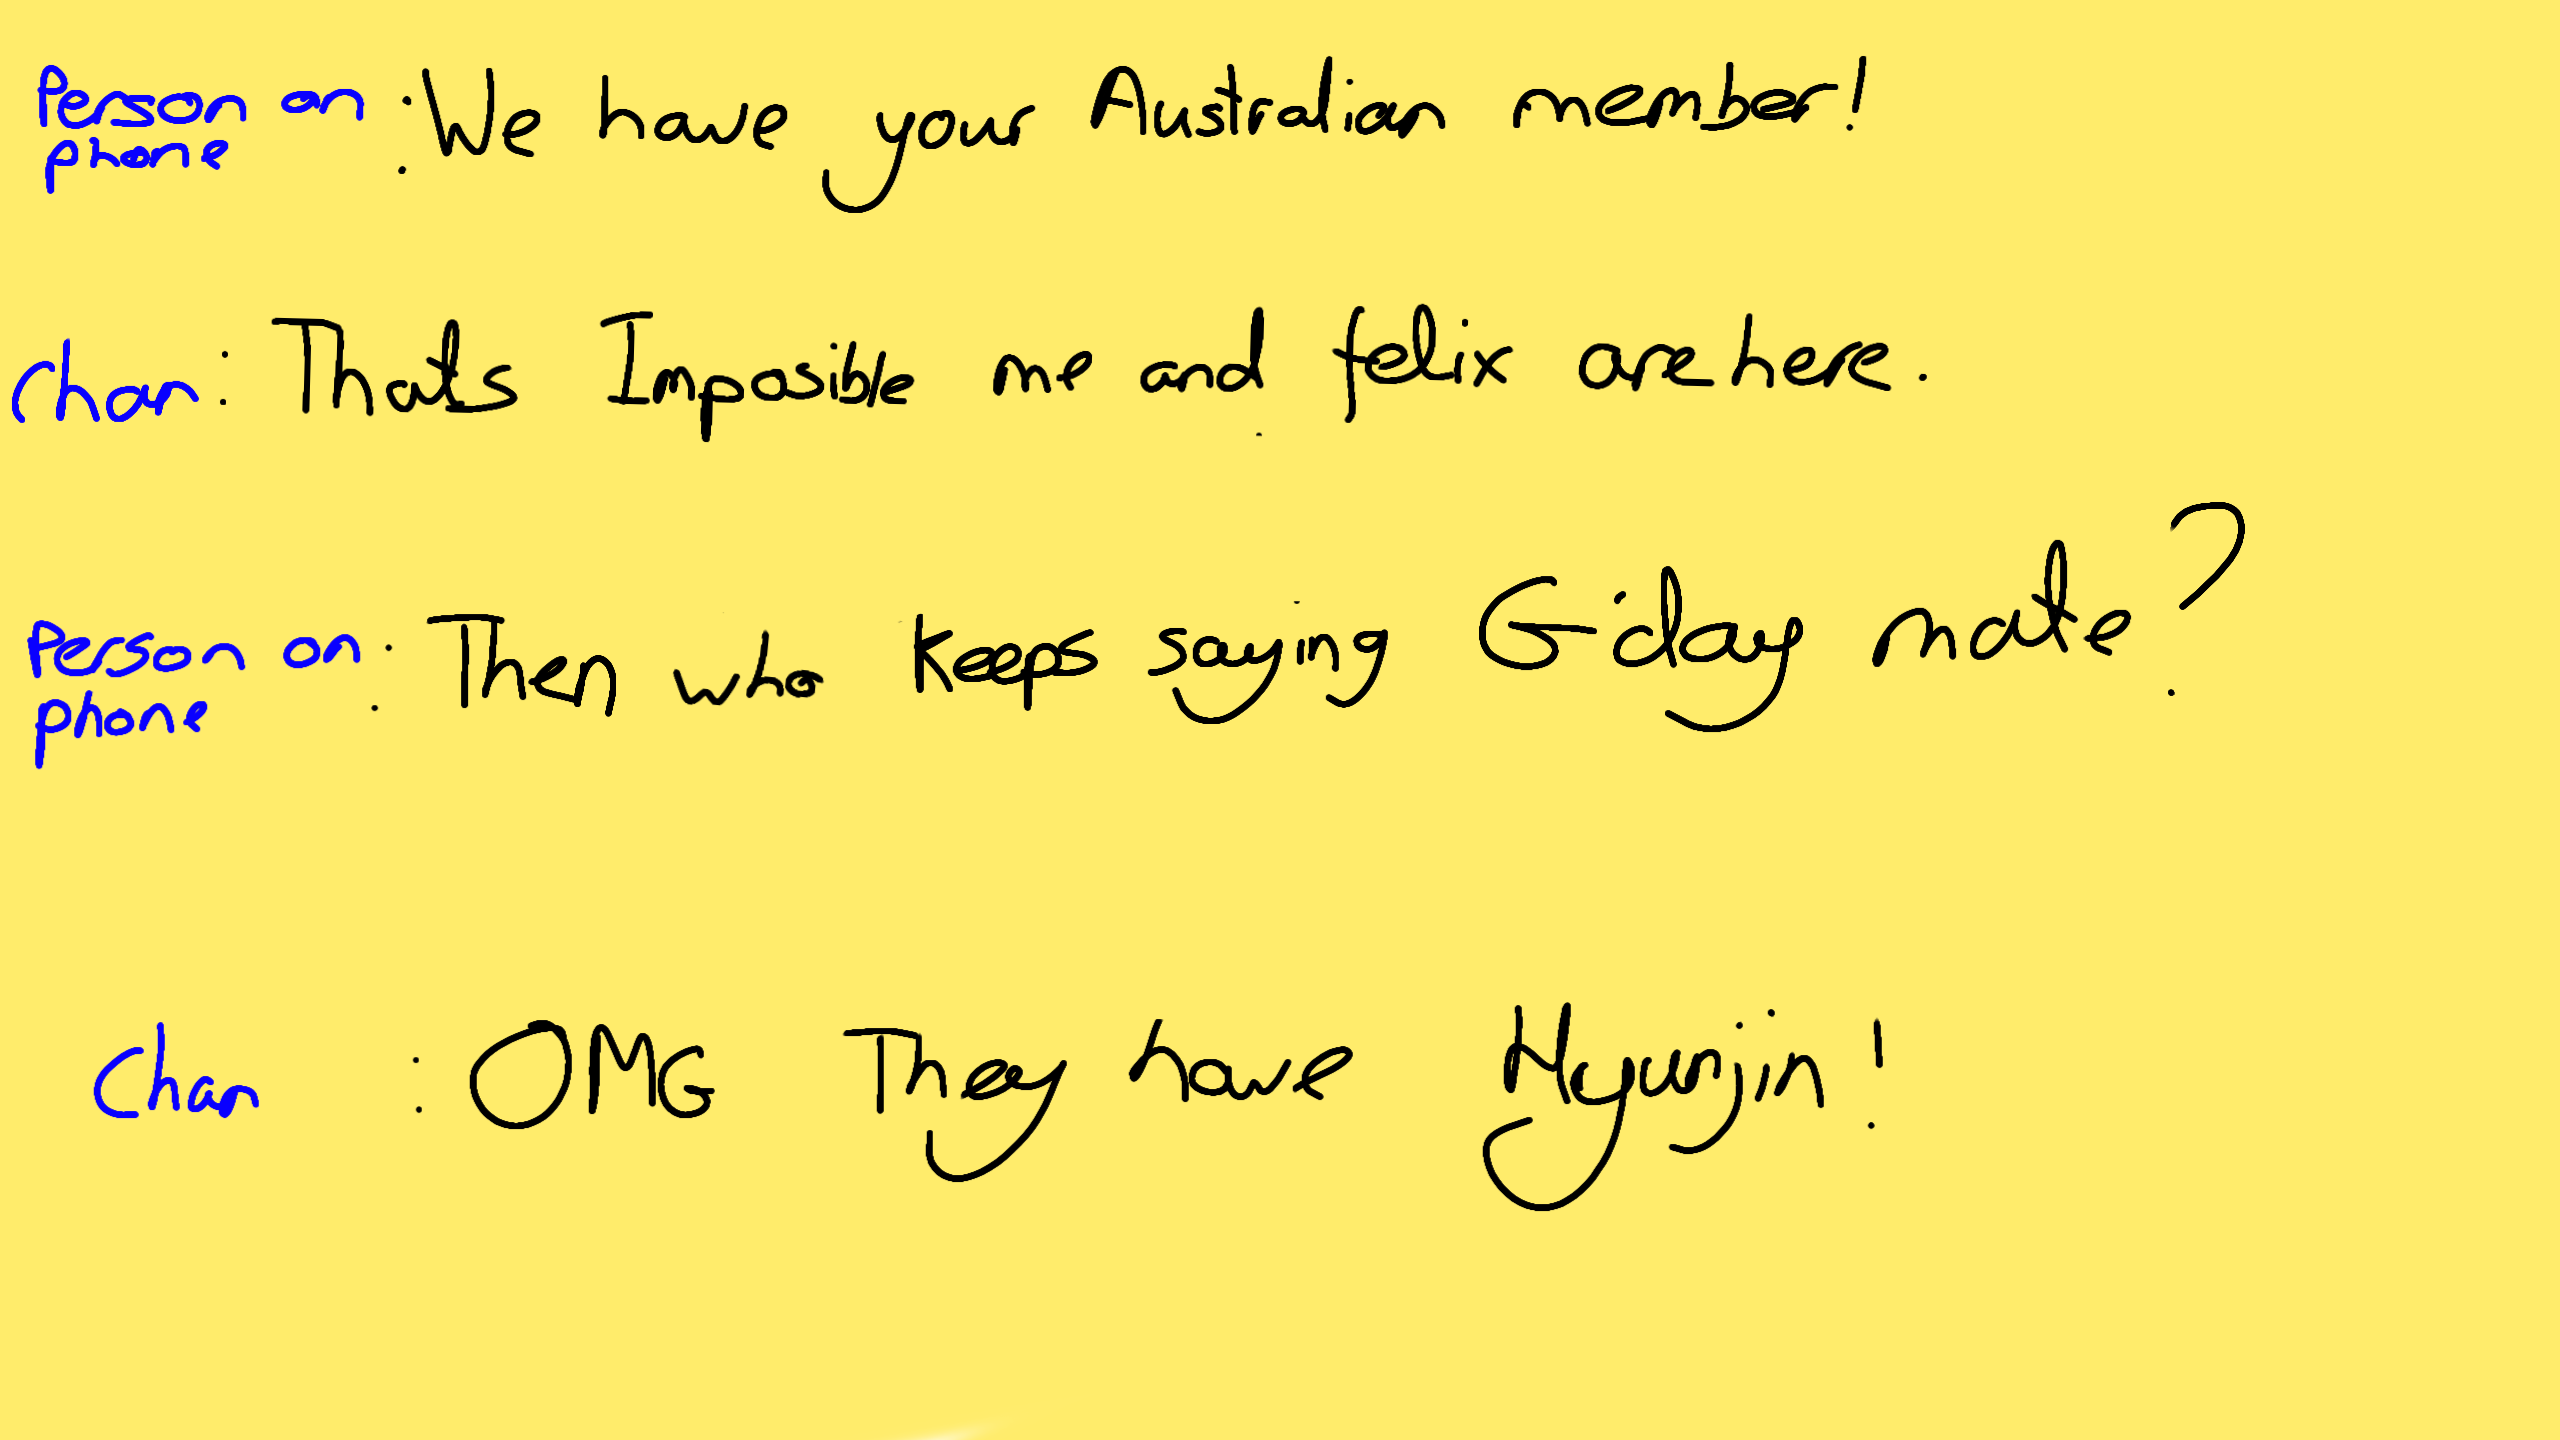 Person on phone : We have your Australian member!
Chan : Thats Imposible me and felix are here.
Person on phone : Then who keeps saying G'day mate?
Chan : OMG They have Hyunjin!